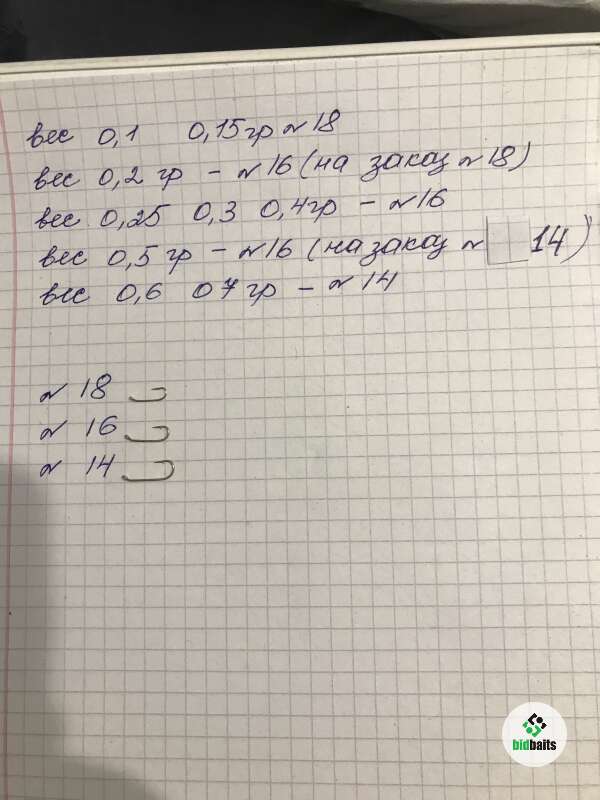 вес 0,1 0,15гр № 18
вес 0,2 гр - № 16 (на заказ № 18)
вес 0,25 0,3 0,4гр - № 16
вес 0,5 гр - № 16 (на заказ № 14)
вес 0,6 07 гр - № 14
№ 18
№ 16
№ 14
bidbaits